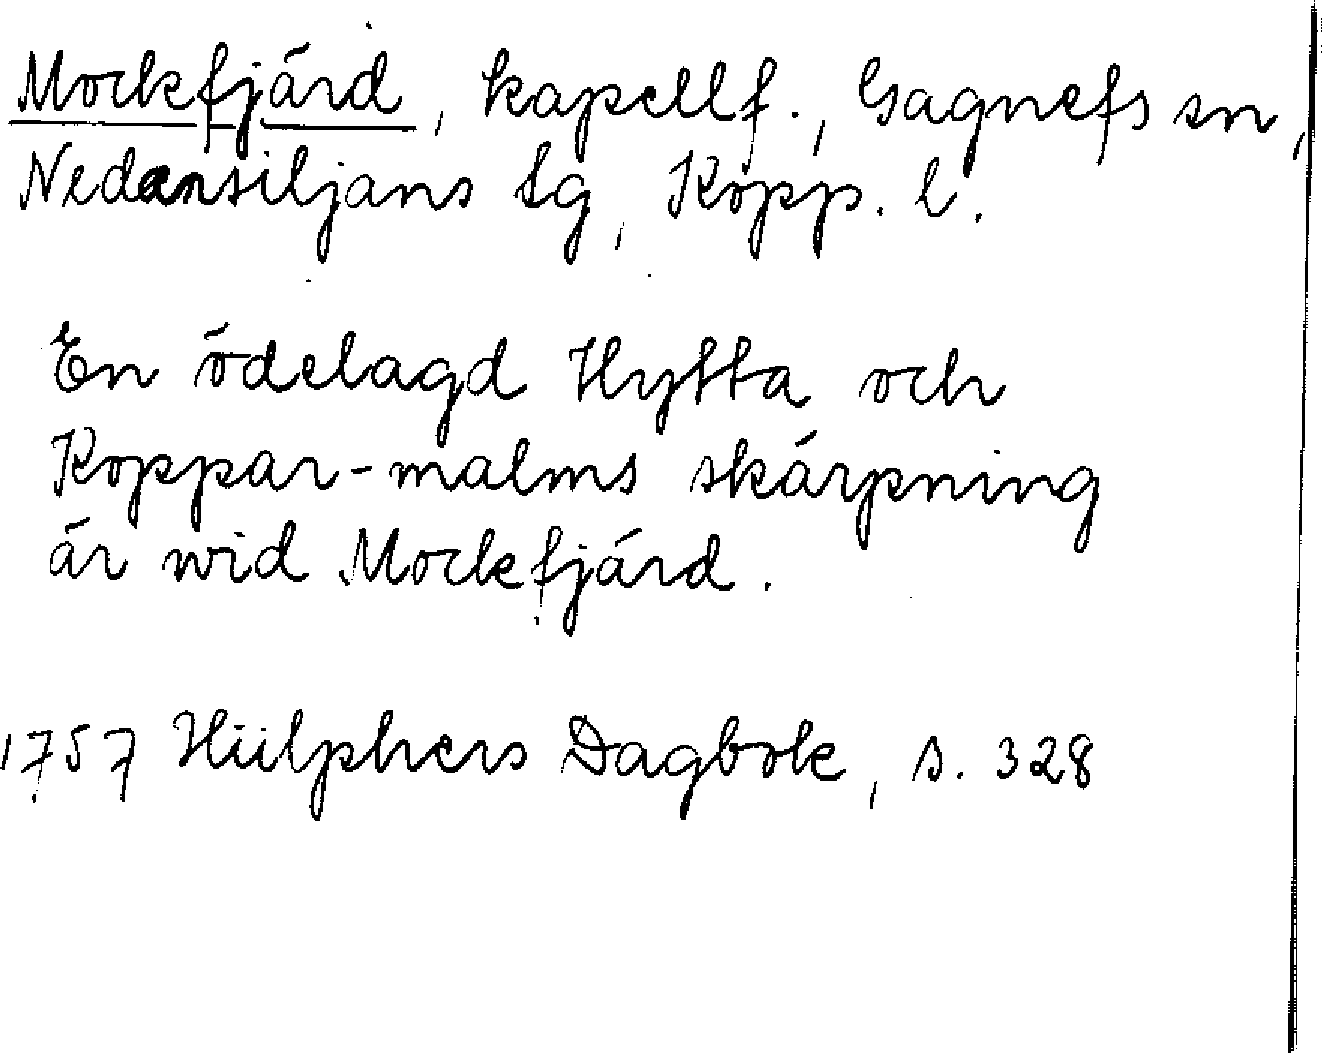 Mockfjärd, kapellf., Gagnefs sn,
Nedansiljans tg, Kopp. l.
En ödelagd Hytta och
Koppar-malms skärpning
är wid Mockfjärd.
1757 Hülphers Dagbok, s. 328